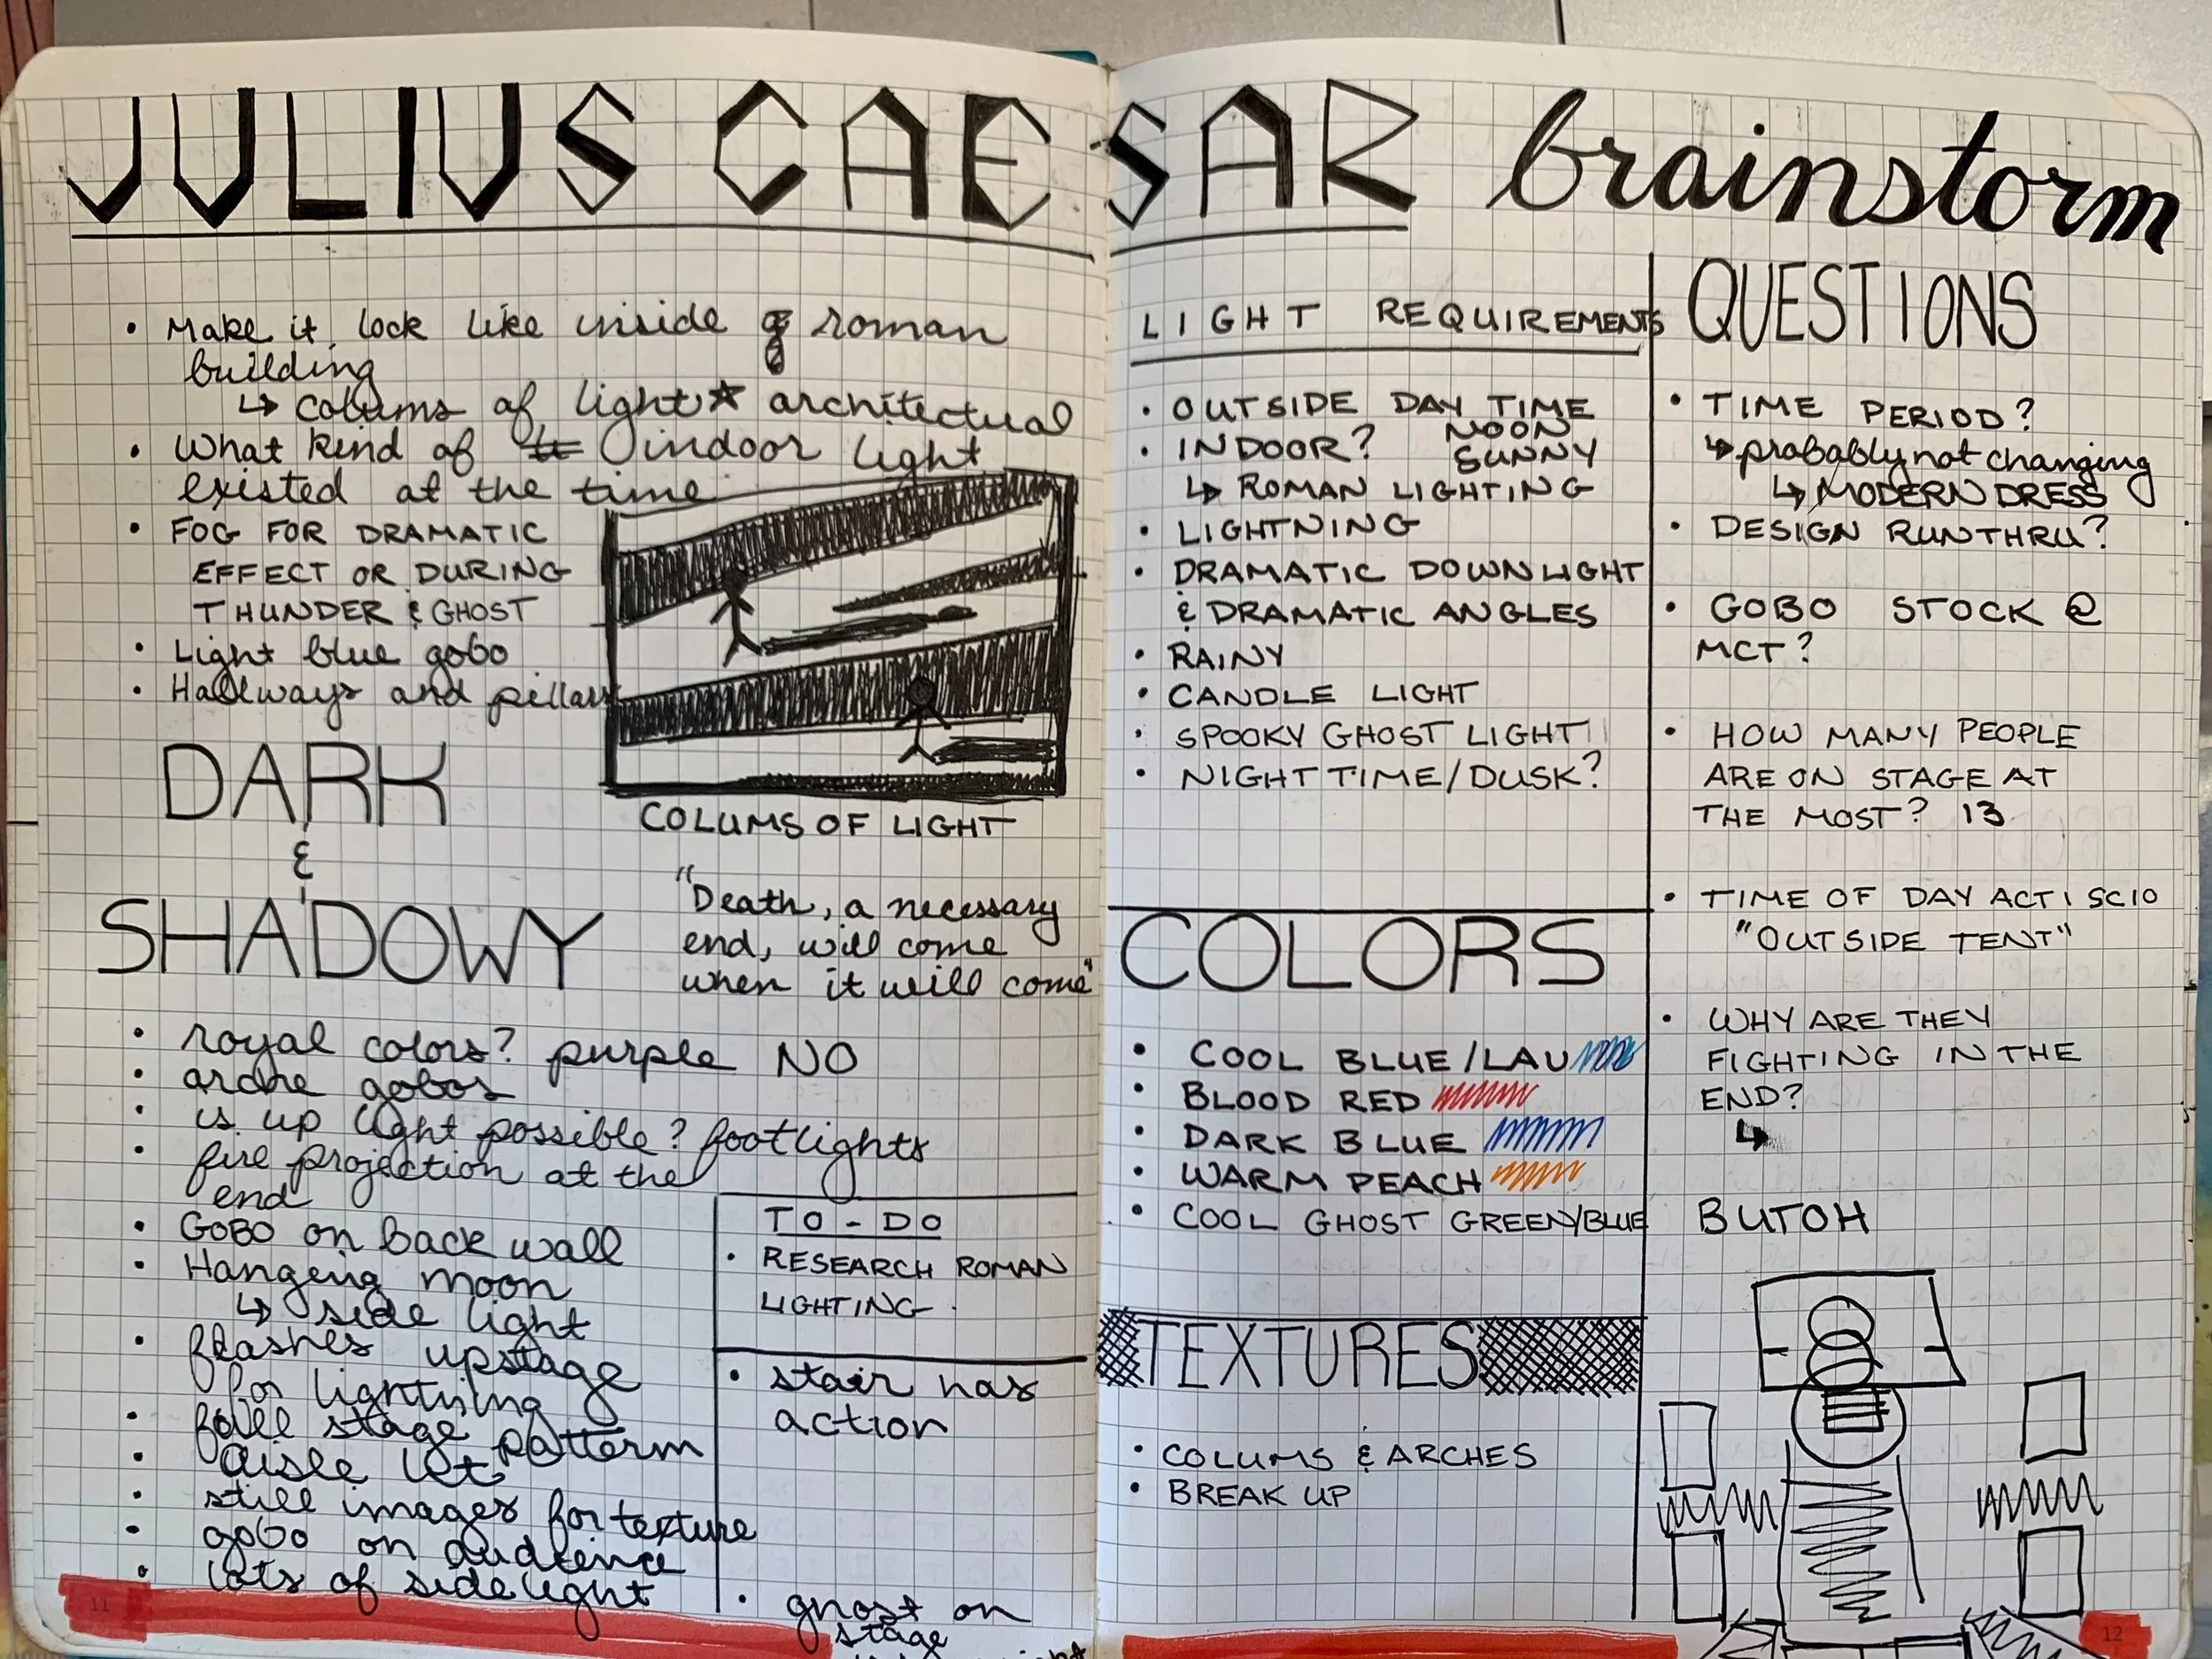 JULIUS CAESAR brainstorm
• Make it look like inside of roman
building
↳ colums of light ★ architectural
• What kind of indoor light
existed at the time
• FOG FOR DRAMATIC
EFFECT OR DURING
THUNDER & GHOST
• Light blue gobo
• Hallways and pillars
COLUMS OF LIGHT
DARK
&
SHADOWY
"Death, a necessary
end, will come
when it will come"
• royal colors? purple NO
• arche gobos
• is up light possible? footlights
• fire projection at the
end
• GOBO on back wall
• Hanging moon
↳ side light
• flashes upstage
for lightning
• full stage pattern
• aisle let
• still images for texture
• gobo on audience
• lots of sidelight
11
TO-DO
• RESEARCH ROMAN
LIGHTING.
• stair has
action
• ghost on
stage
LIGHT REQUIREMENTS
• OUTSIDE DAY TIME
NOON
SUNNY
• INDOOR?
↳ ROMAN LIGHTING
• LIGHTNING
• DRAMATIC DOWNLIGHT
& DRAMATIC ANGLES
• RAINY
• CANDLE LIGHT
• SPOOKY GHOST LIGHT
• NIGHT TIME/DUSK?
COLORS
• COOL BLUE/LAU
• BLOOD RED
• DARK BLUE
• WARM PEACH
• COOL GHOST GREEN/BLUE
TEXTURES
• COLUMS & ARCHES
• BREAK UP
QUESTIONS
• TIME PERIOD?
↳ probably not changing
↳ MODERN DRESS
• DESIGN RUNTHRU?
• GOBO STOCK @
MCT?
• HOW MANY PEOPLE
ARE ON STAGE AT
THE MOST? 13
• TIME OF DAY ACT I SC10
"OUTSIDE TENT"
• WHY ARE THEY
FIGHTING IN THE
END?
↳
BUTOH
12